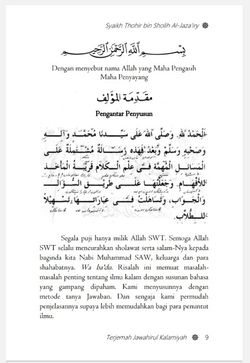 Syaikh Thohir bin Sholih Al-Jaza'iry
بِسْمِ اللهِ الرَّحْمٰنِ الرَّحِيْمِ
Dengan menyebut nama Allah yang Maha Pengasih
Maha Penyayang
مقدمة المؤلف
Pengantar Penyusun
اَلْحَمْدُ لِلّٰهِ، وَصَلَّى اللهُ عَلَى سَيِّدِنَا مُحَمَّدٍ وَآلِهِ
وَصَحْبِهِ وَسَلَّمَ وَبَعْدُ فَهٰذِهِ رِسَالَةٌ مُشْتَمِلَةٌ عَلَى
الْمَسَائِلِ الْمُهِمَّةِ فِيْ عِلْمِ الْكَلَامِ قَرِيْبَةُ الْمَأْخَذِ
لِلْأَفْهَامِ. وَجَعَلْتُهَا عَلَى طَرِيْقِ السُّؤَالِ
وَالْجَوَابِ، وَتَسَاهَلْتُ فِيْ عِبَارَاتِهَا تَسْهِيْلًا
لِلطُّلَّابِ.
Segala puji hanya milik Allah SWT. Semoga Allah
SWT selalu mencurahkan sholawat serta salam-Nya kepada
baginda kita Nabi Muhammad SAW, keluarga dan para
shahabatnya. Wa ba'du. Risalah ini memuat masalah-
masalah penting tentang ilmu kalam dengan susunan bahasa
yang gampang dipaham. Kami menyusunnya dengan
metode tanya Jawaban. Dan sengaja kami permudah
penjelasannya supaya lebih memudahkan bagi para penuntut
ilmu.
Terjemah Jawahirul Kalamiyah 9